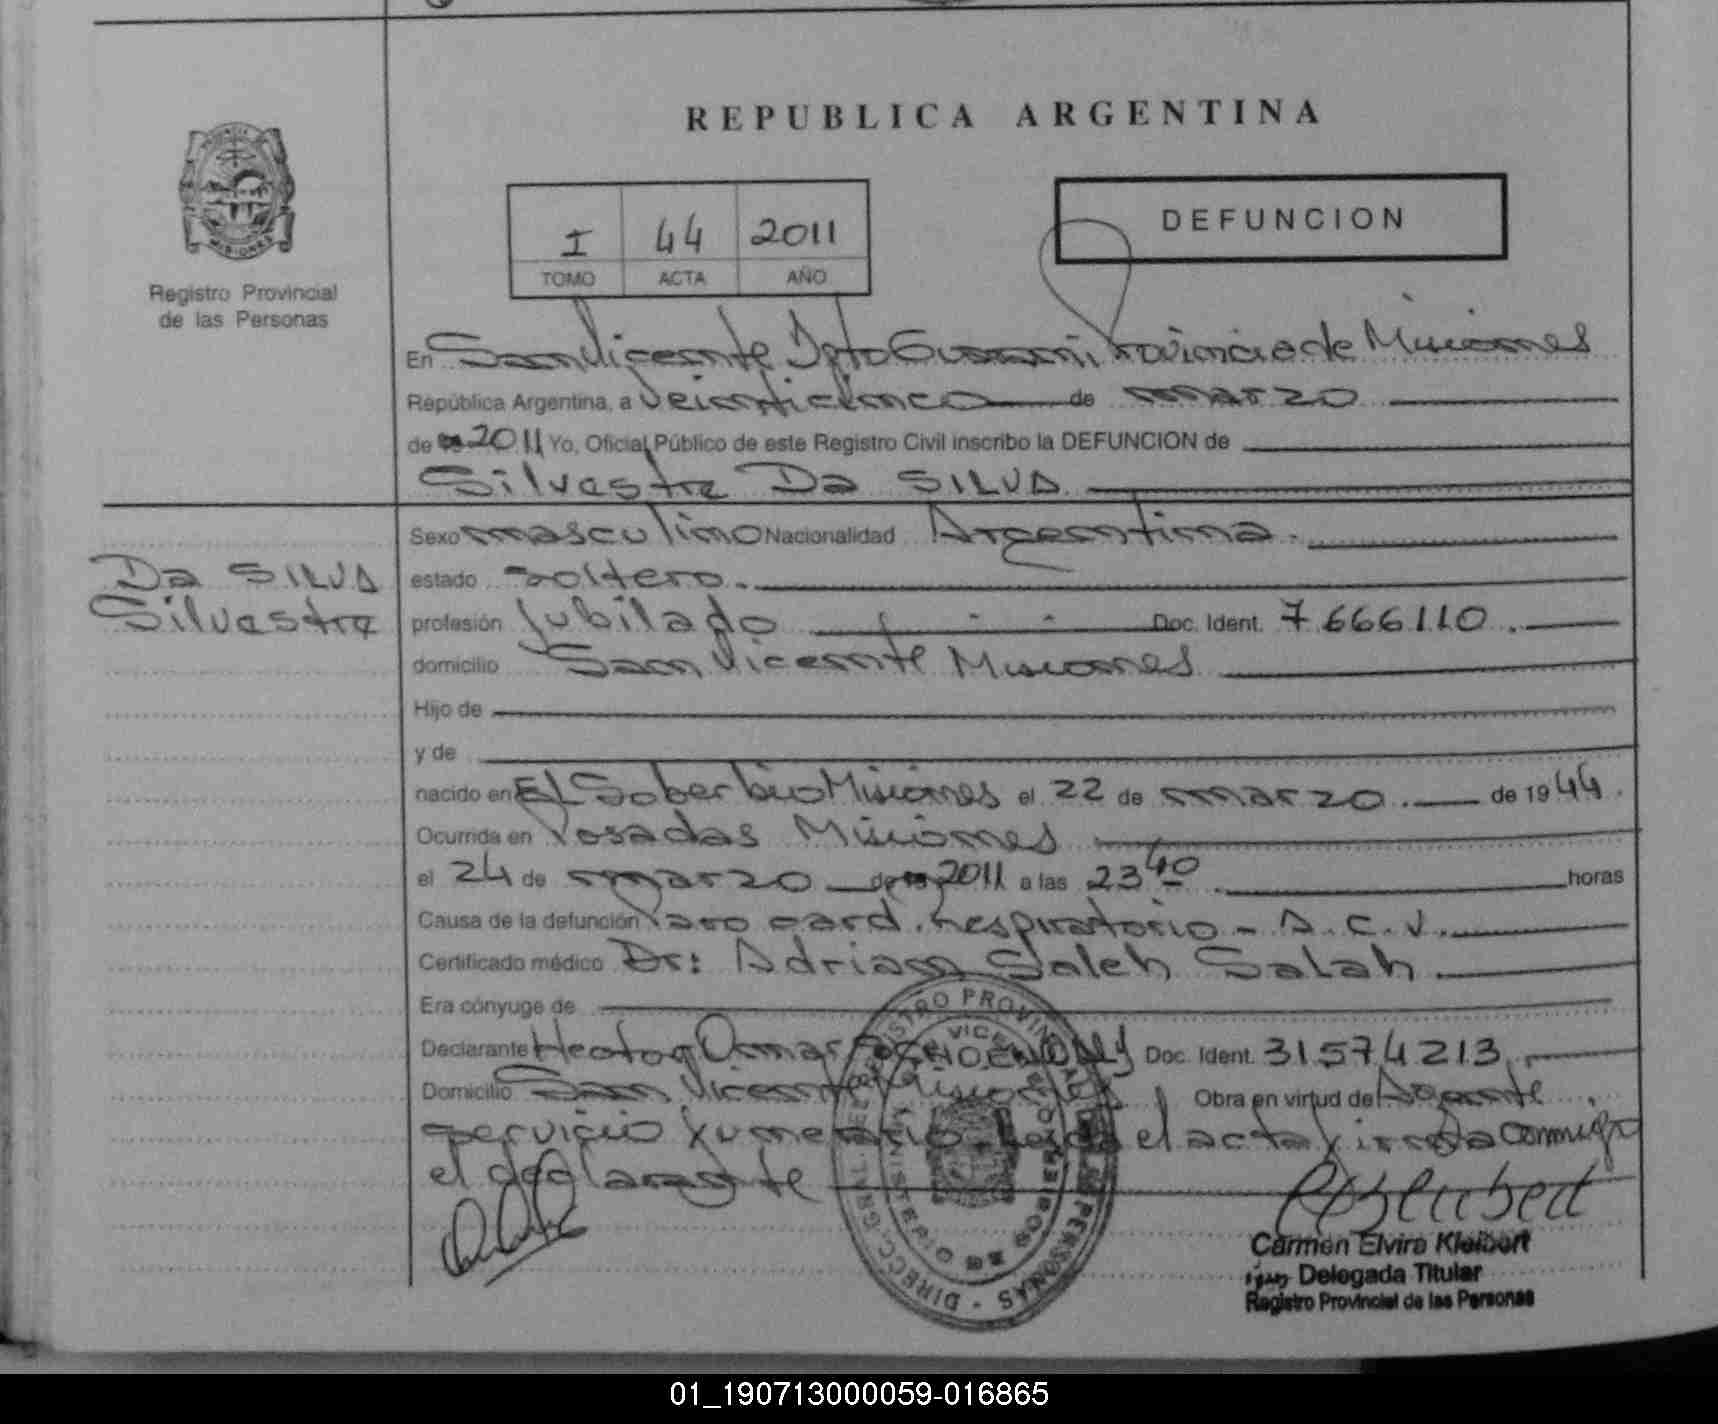 REPUBLICA ARGENTINA
I 44 2011
TOMO ACTA AÑO
DEFUNCION
MISIONES
Registro Provincial
de las Personas
En San Vicente Dpto Guarani Provincia de Misiones
República Argentina, a Veinticinco de marzo
de 19 2011 Yo, Oficial Público de este Registro Civil inscribo la DEFUNCION de
Silvestre Da SILVA
Da SILVA
Silvestre
Sexo masculino Nacionalidad Argentina.
estado soltero.
profesión Jubilado Doc. Ident. 7666110.
domicilio San Vicente Misiones
Hijo de
y de
nacido en El Soberbio Misiones el 22 de marzo. de 1944.
Ocurrida en Posadas Misiones
el 24 de marzo de 19 2011 a las 23 40 horas
Causa de la defunción Paro card. respiratorio - A.C.V.
Certificado médico Dr: Adrian Saleh Salah.
Era cónyuge de
Declarante Hector Omar Doc. Ident. 31574213
Domicilio San Vicente Misiones Obra en virtud de Agente
servicio funerario. Leida el acta firma conmigo
el declarante
Carmen Elvira Kleibert
Delegada Titular
Registro Provincial de las Personas
01_190713000059-016865